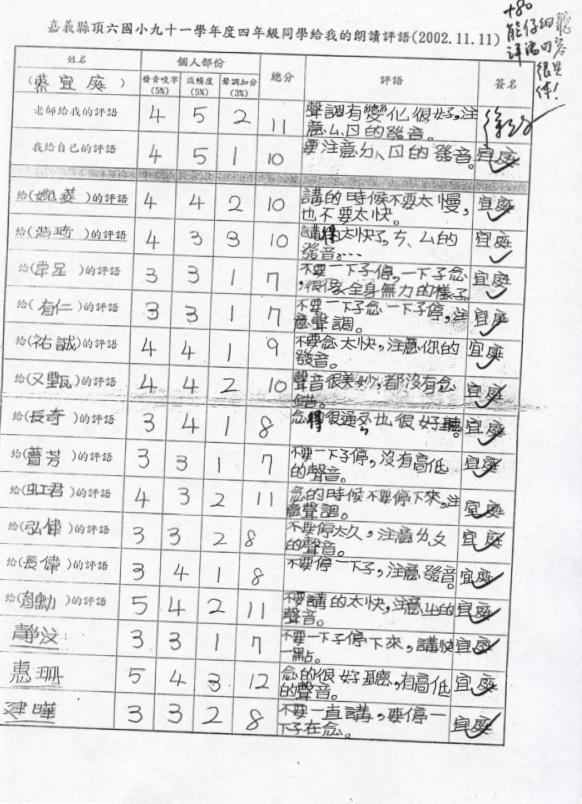 嘉義縣頂六國小九十一學年度四年級同學給我的朗讀評語(2002.11.11)
+80
能仔細聽
評語內容
很具
体!
姓名 個人部份 總分 評語 簽名
(蔡宜庭) 發音咬字(5%) 流暢度(5%) 聲調加分(3%)
老師給我的評語 4 5 2 11 聲調有變化很好,注
意ㄙ、ㄖ的發音。
我給自己的評語 4 5 1 10 要注意ㄌ、ㄖ的發音。宜庭
給( )的評語 4 4 2 10 講的時候不要太慢,
也不要太快。 宜庭
給( 琦)的評語 4 3 3 10 太快了,ㄘ、ㄙ的
發音… 宜庭
給( )的評語 3 3 1 7 不要一下子停,一下子念
,很像全身無力的樣子 宜庭
給(有仁)的評語 3 3 1 7 不要一下子念一下子停,注
意聲調。 宜庭
給(祐誠)的評語 4 4 1 9 不要念太快,注意你的
發音。 宜庭
給(又甄)的評語 4 4 2 10 聲音很美妙,都沒有念
錯。 宜庭
給(長奇)的評語 3 4 1 8 念得很通 也很好聽。宜庭
給( 芳)的評語 3 3 1 7 不要一下子停,沒有高低
的聲音。 宜庭
給(虹君)的評語 4 3 2 11 念的時候不要停下來,注
意聲調。 宜庭
給(弘偉)的評語 3 3 2 8 不要停太久,注意ㄌ、ㄆ
的聲音。 宜庭
給(長偉)的評語 3 4 1 8 不要停一下子,注意發音。宜庭
給( 勳)的評語 5 4 2 11 不要講的太快,注意ㄓ的
聲音。 宜庭
靜汶 3 3 1 7 不要一下子停下來,講快
一點。 宜庭
惠珊 5 4 3 12 念的很好聽,有高低
的聲音。 宜庭
建曄 3 3 2 8 不要一直講,要停一
下子在念。 宜庭